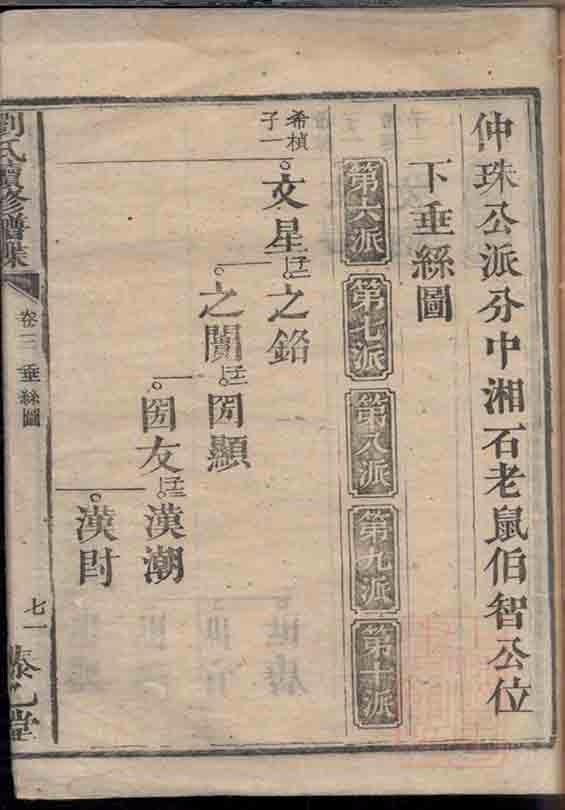 仲珠公派分中湘石老鼠伯智公位
下垂絲圖
第六派
第七派
第八派
第九派
第十派
希楨
子一
文星
子二
之銘
之闓
子二
國顯
國友
子二
漢潮
漢封
劉氏續修譜牒
卷三 垂絲圖
七一
藜乙堂